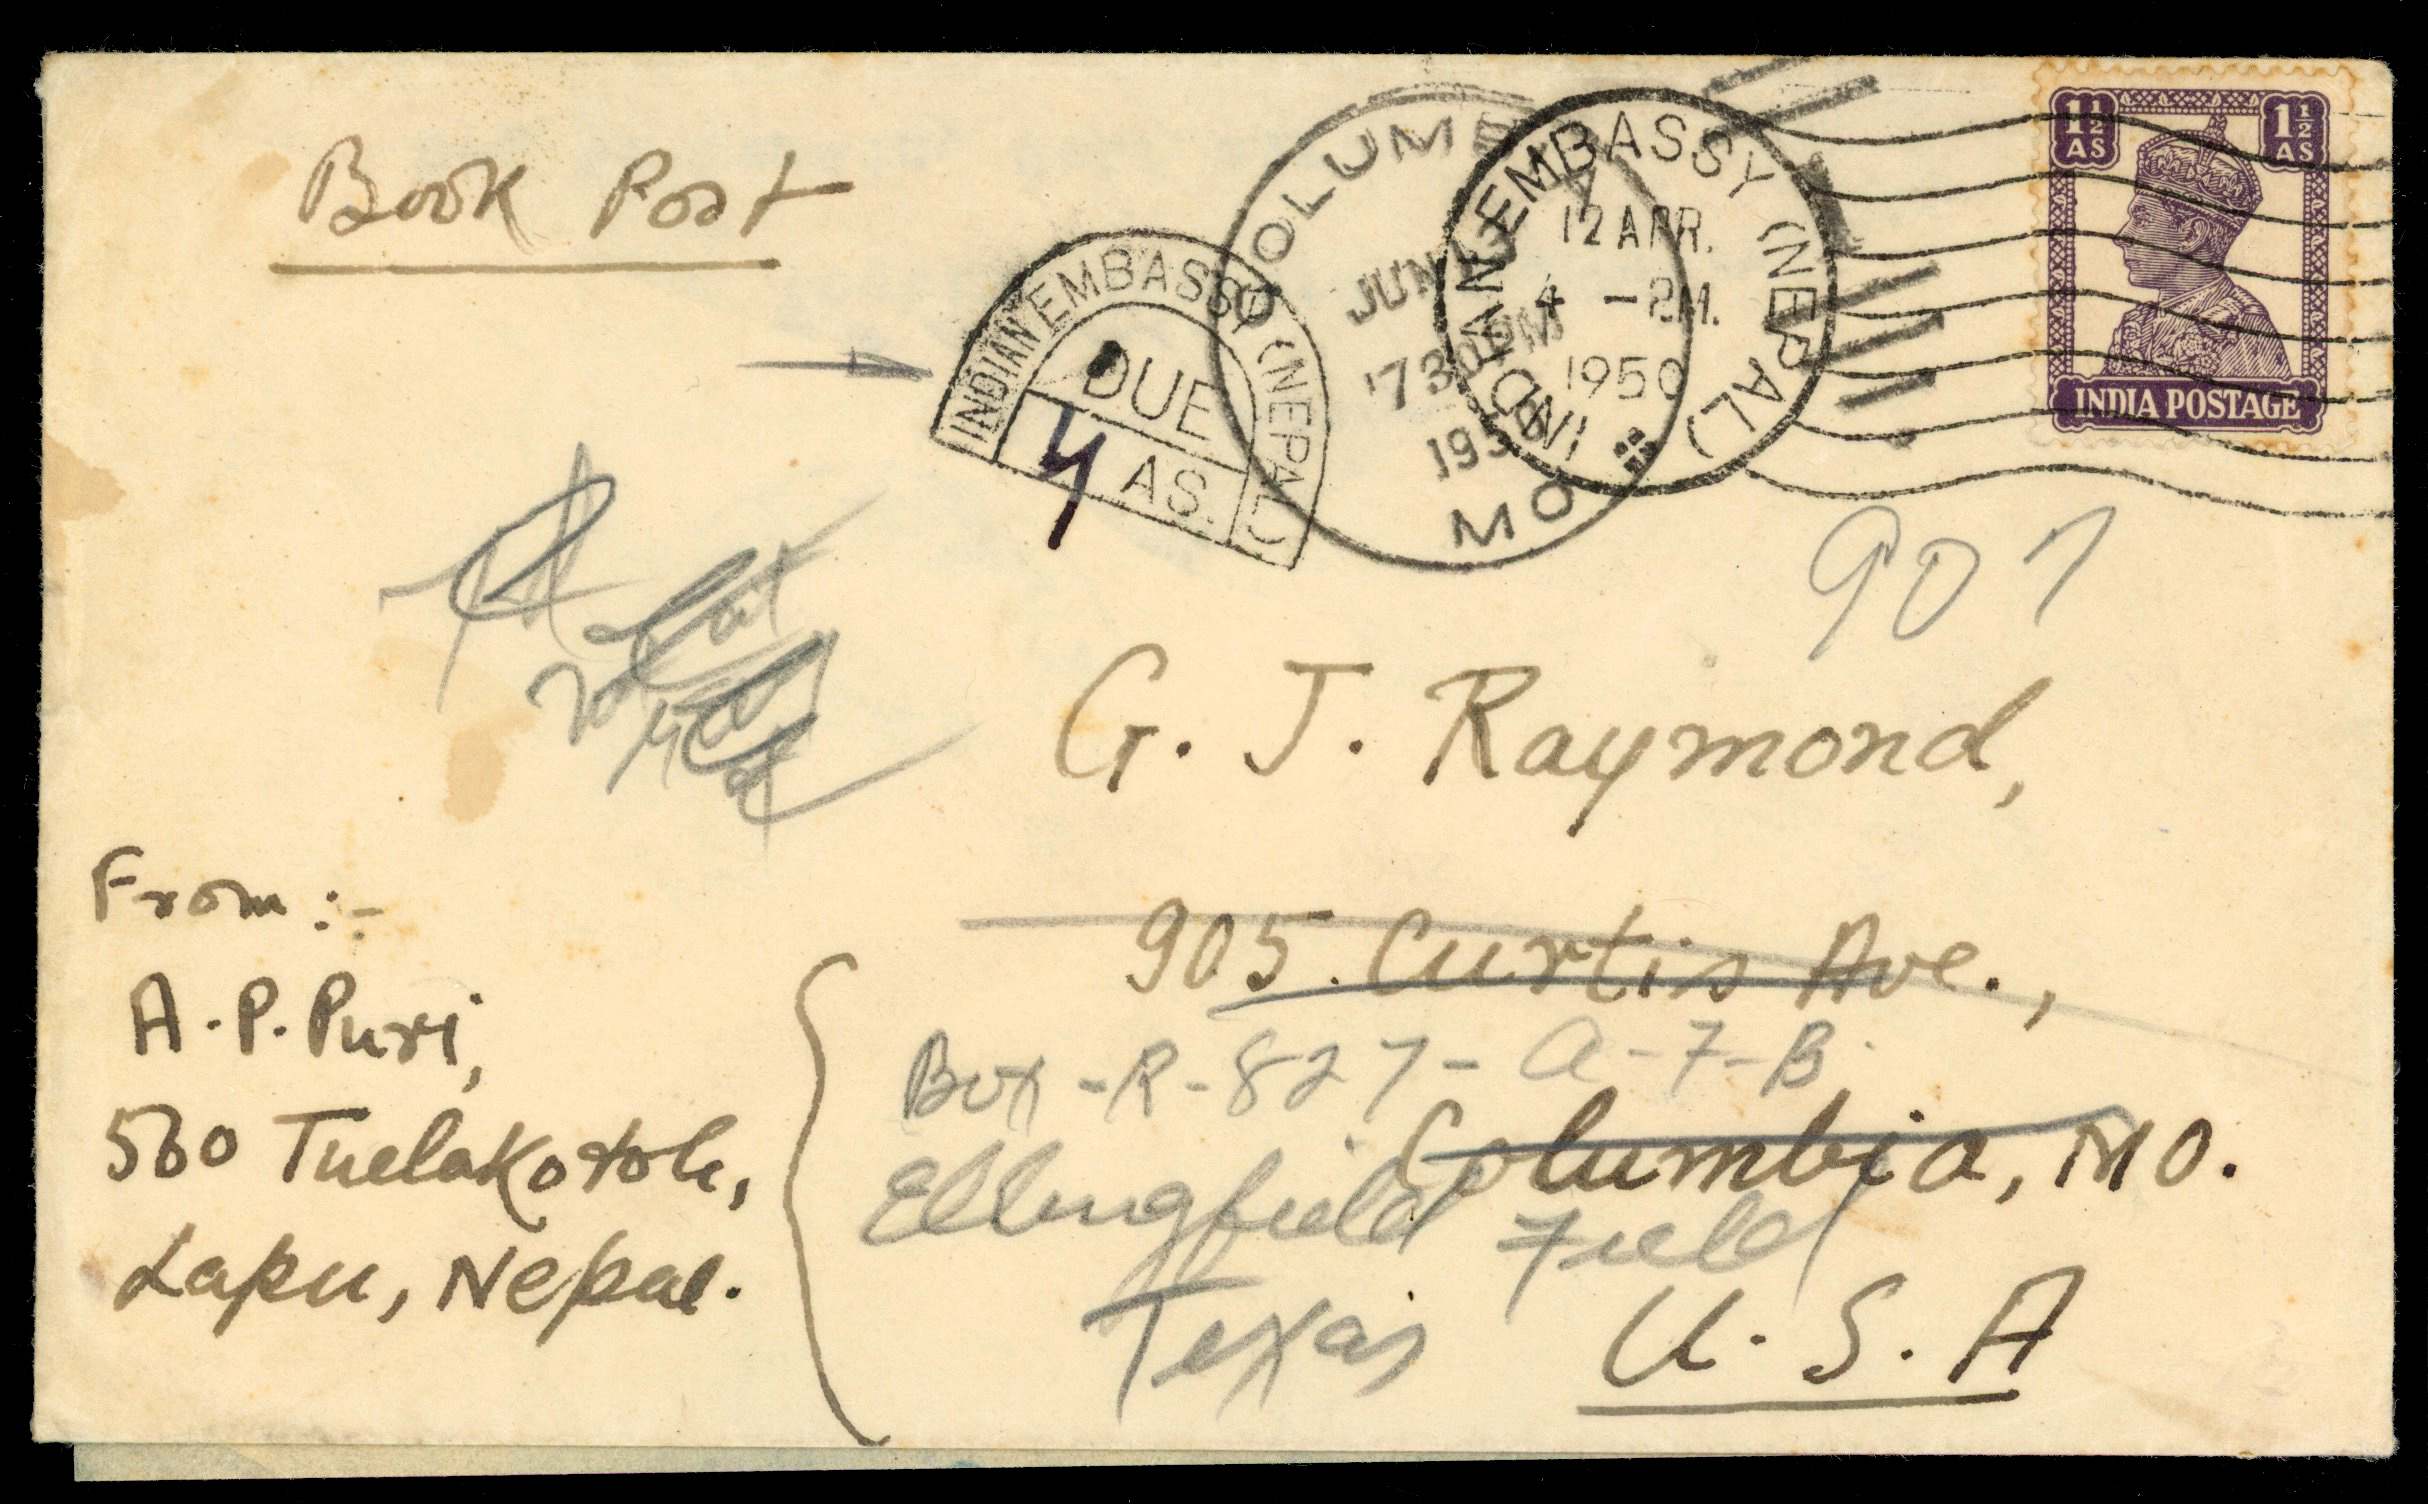 Book Post
INDIAN EMBASSY (NEPAL)
DUE
4 AS.
COLUMBIA
JUN
730PM
1950
MO
INDIAN EMBASSY (NEPAL)
12 APR.
4 - P.M.
1950
1½ AS
1½ AS
INDIA POSTAGE
907
G. J. Raymond,
905. Curtis Ave.,
Box - R - 827 - A - 7 - B
Columbia, MO.
Ellingfield Field
Texas
U. S. A
From :-
A. P. Puri,
560 Tuelakotole,
Lapu, Nepal.